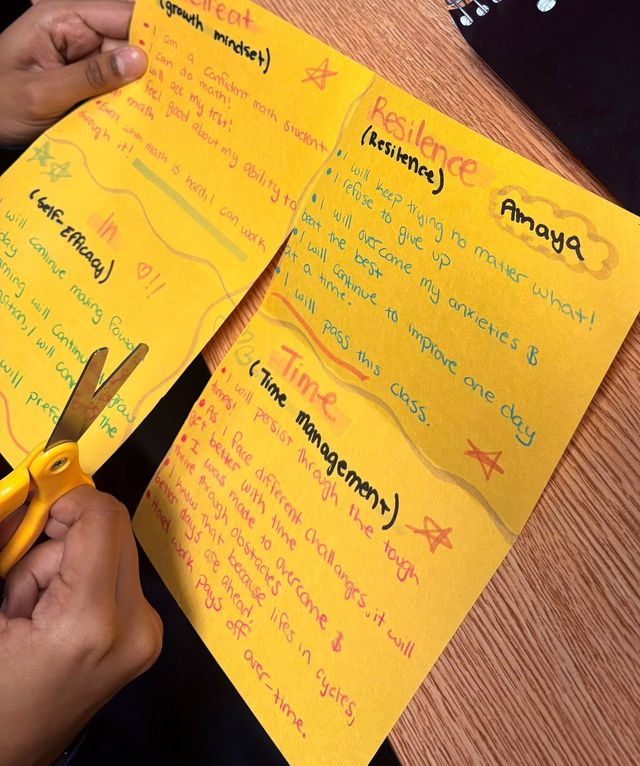 (growth mindset)
• I am a confident math student
I can do math!
will ace my test!
feel good about my ability to
math
• Even when math is hard, I can work
through it!
In
(Self-Efficacy)
I will continue moving
Resilence
(Resilence)
Amaya
• I will keep trying no matter what!
• I refuse to give up
• I will overcome my anxieties &
beat the best
• I will continue to improve one day
at a time.
• I will pass this class.
Time
(Time management)
• I will persist through the tough
times!
• As I face different challanges, it will
get better with time
• I was made to overcome &
thrive through obstacles
• I know that because lifes in cycles,
better days are ahead!
• Hard work pays off over-time.